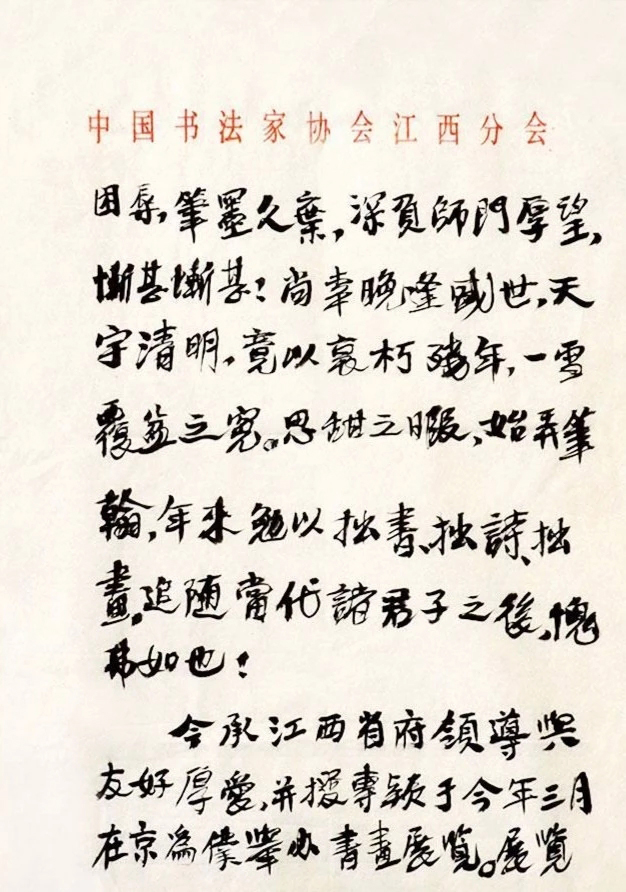 中国书法家协会江西分会
困辱,筆墨久棄,深負師門厚望,
慚甚慚甚!尚幸晚逢盛世,天
宇清明,竟以衰朽殘年,一雪
覆盆之冤。思甜之暇,始弄筆
翰,年來勉以拙書、拙詩、拙
畫,追随當代諸君子之後,愧
弗如也!
今承江西省府領導與
友好厚愛,并撥專款于今年三月
在京為僕舉办書畫展覽。展覽